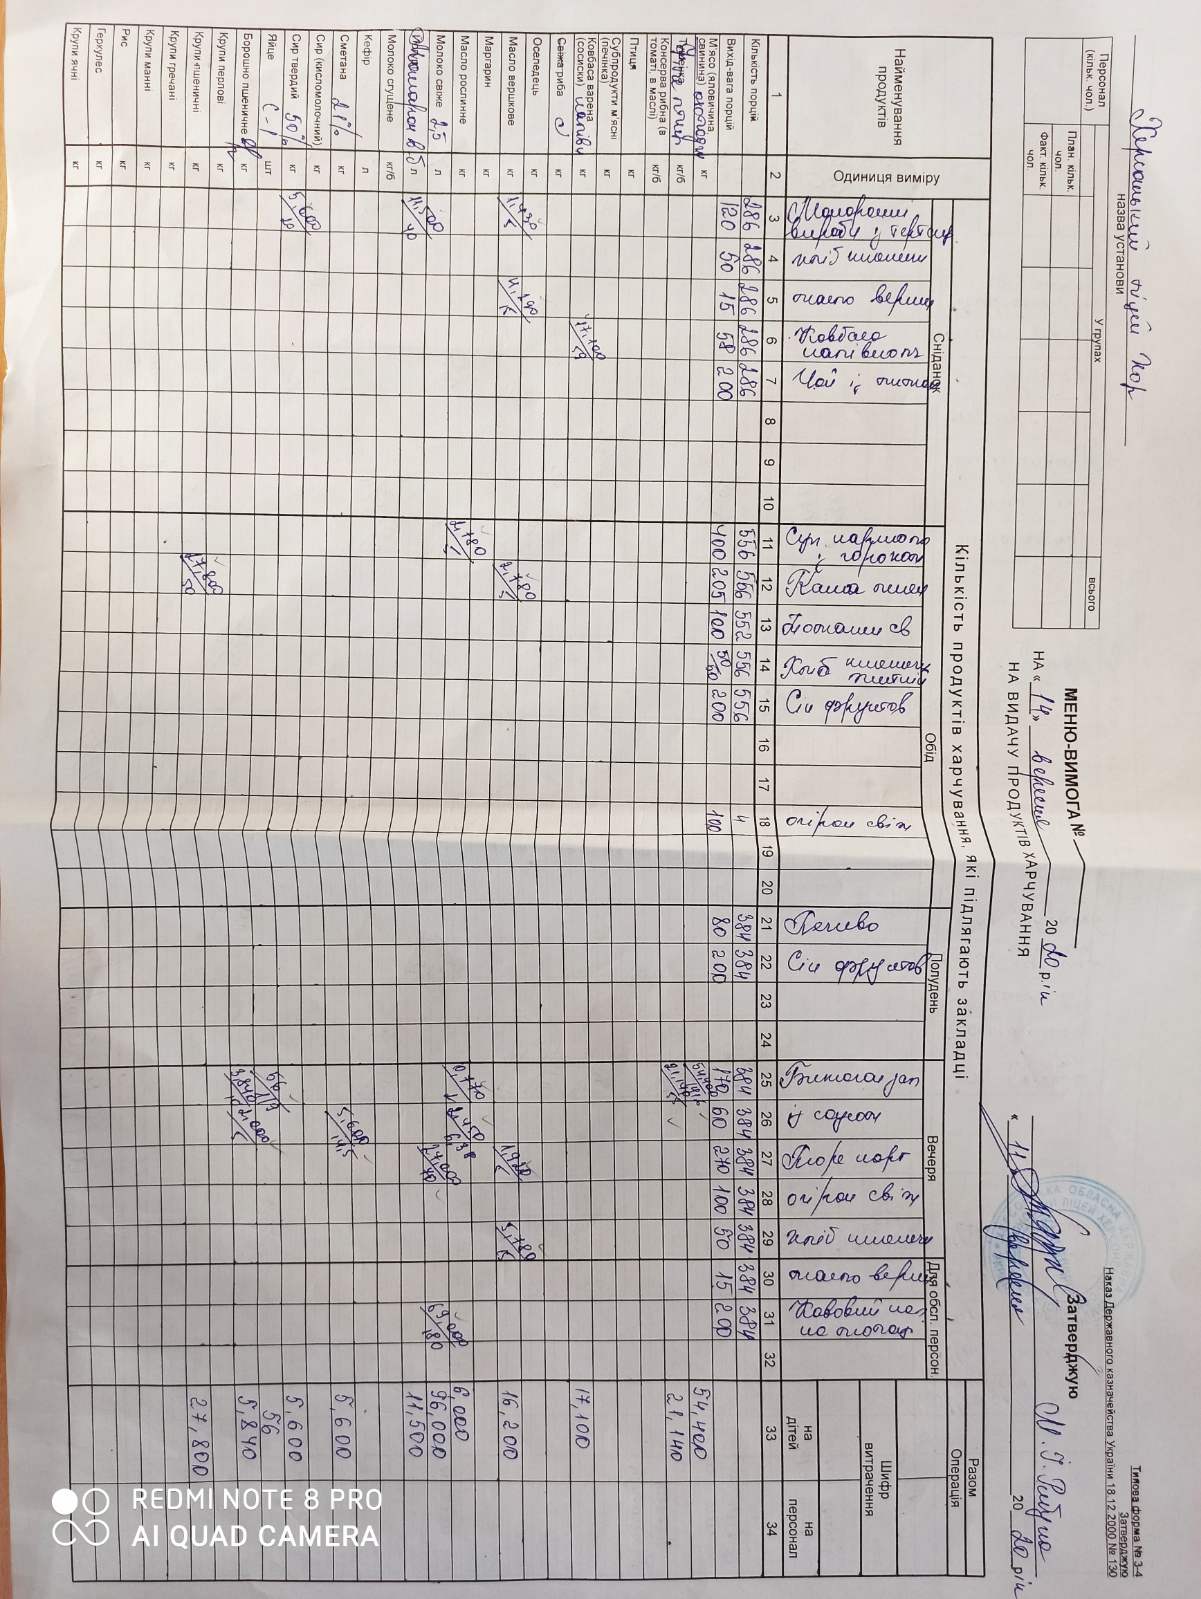 Типова форма № 3-4
Затверджую
Наказ Державного казначейства України 18.12.2000 № 130
Затверджую
« 11 » вересня 20 20 рік
назва установи
МЕНЮ-ВИМОГА №
НА « 14 » вересня 20 20 рік
НА ВИДАЧУ ПРОДУКТІВ ХАРЧУВАННЯ
Персонал (кільк. чол.)
У групах
всього
План. кільк. чол.
Факт. кільк. чол.
Найменування продуктів
Одиниця виміру
Кількість продуктів харчування, які підлягають закладці
Сніданок
Обід
Полудень
Вечеря
Для обсл. персон.
Разом
Операція
Шифр витрачення
на дітей
на персонал
Макаронні вироби з терт сир
хліб пшенич
масло верш
Ковбаса напівкопч
Чай із лимон
Суп картопл з горохом
Каша пшен
Помідори св
Хліб пшенич житній
Сік фруктов
огірок свіж
Печиво
Сік фруктов
Биточки зап
із соусом
Пюре карт
огірок свіж
хліб пшенич
масло верш
Кавовий нап на молоці
1 2 3 4 5 6 7 8 9 10 11 12 13 14 15 16 17 18 19 20 21 22 23 24 25 26 27 28 29 30 31 32 33 34
Кількість порцій 286 286 286 286 286 556 556 552 556 556 4 384 384 384 384 384 384 384 384 384
Вихід-вага порцій 120 50 15 58 200 400 205 100 50/50 200 100 80 200 170 60 270 100 50 15 200
М'ясо (яловичина свинина) кг 54,400
кг/б 21,140
Консерва рибна (в томаті, в маслі) кг/б
Птиця кг
Субпродукти м'ясні (печінка) кг
Ковбаса варена (сосиски) напівк кг 17,100 17,100
Свіжа риба кг
Оселедець кг
Масло вершкове кг 1,430 4,290 2,780 1,920 5,780 16,200
Маргарин кг
Масло рослинне кг 2,780 0,770 2,450 6,000
Молоко свіже 2,5 л 27,000 69,000 96,000
л 11,500 11,500
Молоко згущене кг/б
Кефір л
Сметана 21% кг 5,600 5,600
Сир (кисломолочний) кг
Сир твердий 50% кг 5,600 5,600
Яйце С-1 шт 56 56
Борошно пшеничне кг 3,840 2,000 5,840
Крупи перлові кг
Крупи пшеничні кг 27,800 27,800
Крупи гречані кг
Крупи манні кг
Рис кг
Геркулес кг
Крупи ячні кг
REDMI NOTE 8 PRO
AI QUAD CAMERA